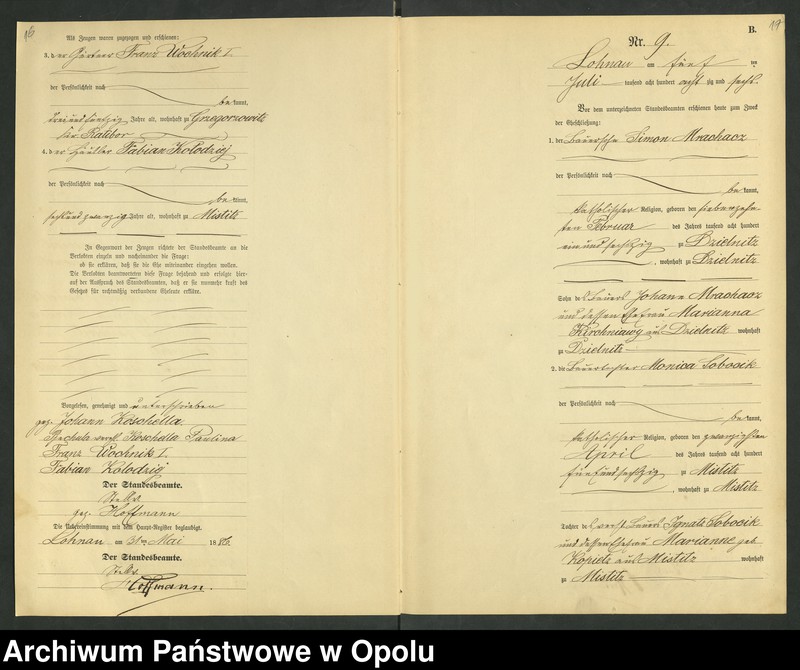 16
Als Zeugen waren zugezogen und erschienen:
3. der Gärtner Franz Wochnik I.
der Persönlichkeit nach
bekannt,
dreiundfünfzig Jahre alt, wohnhaft zu Grzegorzowitz
Kr. Ratibor
4. der Häusler Fabian Kolodziej
der Persönlichkeit nach
bekannt,
sechsundzwanzig Jahre alt, wohnhaft zu Mistitz
In Gegenwart der Zeugen richtete der Standesbeamte an die
Verlobten einzeln und nacheinander die Frage:
ob sie erklären, daß sie die Ehe miteinander eingehen wollen.
Die Verlobten beantworteten diese Frage bejahend und erfolgte hier-
auf der Ausspruch des Standesbeamten, daß er sie nunmehr kraft des
Gesetzes für rechtmäßig verbundene Eheleute erkläre.
Vorgelesen, genehmigt und unterschrieben
gez. Johann Koschella
verehl. Koschella Paulina
Franz Wochnik I.
Fabian Kolodziej
Der Standesbeamte.
Stellv.
gez. Hoffmann
Die Uebereinstimmung mit dem Haupt-Register beglaubigt.
Lohnau am 31ten Mai 1886.
Der Standesbeamte.
Stellv.
Hoffmann.
17
B.
Nr. 9.
Lohnau am fünf ten
Juli tausend acht hundert achtzig und sechs.
Vor dem unterzeichneten Standesbeamten erschienen heute zum Zweck
der Eheschließung:
1. der Bauersohn Simon Mrachacz
der Persönlichkeit nach
bekannt,
katholischer Religion, geboren den siebenzehn
ten Februar des Jahres tausend acht hundert
einundsechszig zu Dzielnitz
, wohnhaft zu Dzielnitz
Sohn des Bauers Johann Mrachacz
und dessen Ehefrau Marianna
aus Dzielnitz wohnhaft
zu Dzielnitz
2. die Bauertochter Monica Sobocik
der Persönlichkeit nach
bekannt,
katholischer Religion, geboren den zwanzigsten
April des Jahres tausend acht hundert
fünfundsechszig zu Mistitz
, wohnhaft zu Mistitz
Tochter des verst. Bauers Ignatz Sobocik
und dessen Ehefrau Marianne geb.
Kopietz aus Mistitz wohnhaft
zu Mistitz
Archiwum Państwowe w Opolu